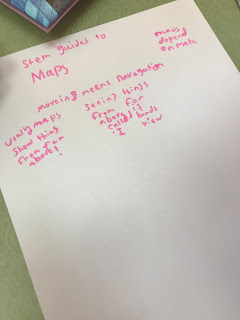 Stem guides to
Maps
maps
depend
on math
moveing means navagation
usually maps
show thing
from far
above!
seeing things
from far
above is
called birds
'I view